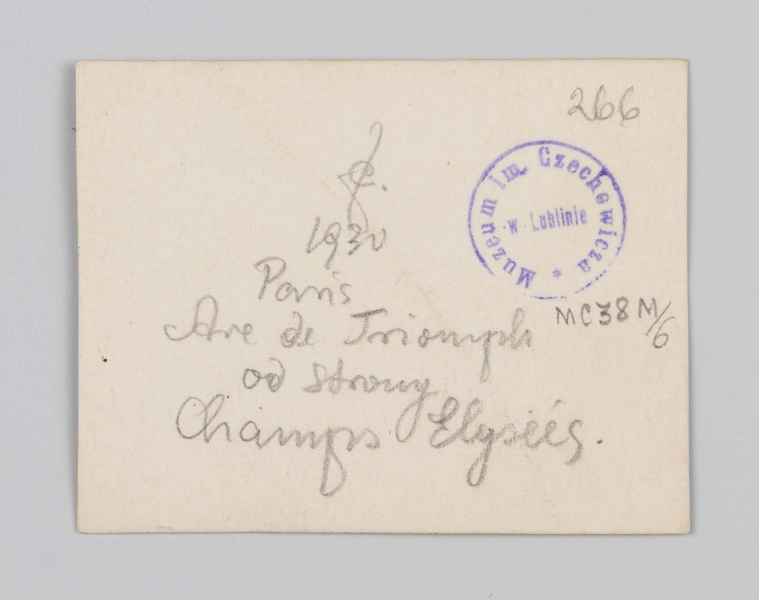 266
Muzeum im. Czechowicza
w Lublinie
1930
Paris
Arc de Triomph
od strony
Champs Elyseés.
MC38M/6